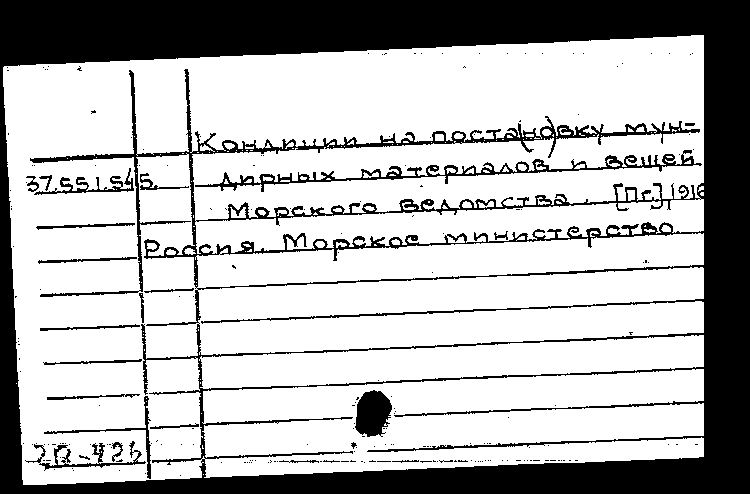 Кондиции на поста(но)вку мун-
37.55.1.545. дирных материалов и вещей
Морского ведомства. [Пг.], 1916
Россия. Морское министерство.